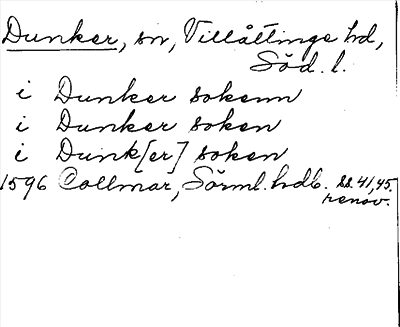 Dunker, sn, Villåttinge hd,
Söd. l.
i Dunker sokenn
i Dunker soken
i Dunk[er] soken
1596 Collmar, Sörml. hdb. ss. 41, 45.
renov.